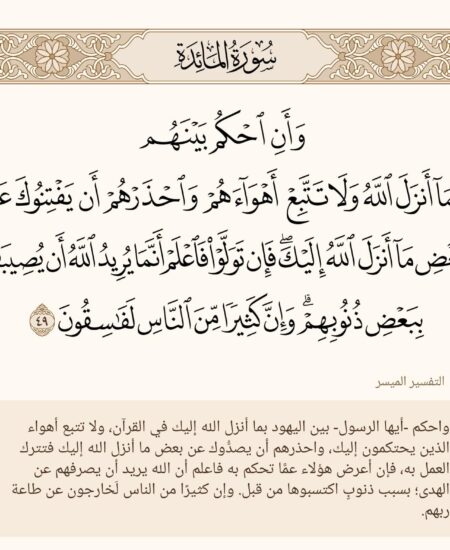 سُورَةُ المَائِدَةِ
وَأَنِ ٱحۡكُم بَيۡنَهُم
مَآ أَنزَلَ ٱللَّهُ وَلَا تَتَّبِعۡ أَهۡوَآءَهُمۡ وَٱحۡذَرۡهُمۡ أَن يَفۡتِنُوكَ
مَآ أَنزَلَ ٱللَّهُ إِلَيۡكَۖ فَإِن تَوَلَّوۡاْ فَٱعۡلَمۡ أَنَّمَا يُرِيدُ ٱللَّهُ أَن
بِبَعۡضِ ذُنُوبِهِمۡۗ وَإِنَّ كَثِيرٗا مِّنَ ٱلنَّاسِ لَفَٰسِقُونَ ٤٩
التفسير الميسر
واحكم -أيها الرسول- بين اليهود بما أنزل الله إليك في القرآن، ولا تتبع أهواء
الذين يحتكمون إليك، واحذرهم أن يصدُّوك عن بعض ما أنزل الله إليك فتترك
العمل به، فإن أعرض هؤلاء عمَّا تحكم به فاعلم أن الله يريد أن يصرفهم عن
الهدى؛ بسبب ذنوبٍ اكتسبوها من قبل. وإن كثيرًا من الناس لَخارجون عن طاعة
ربهم.